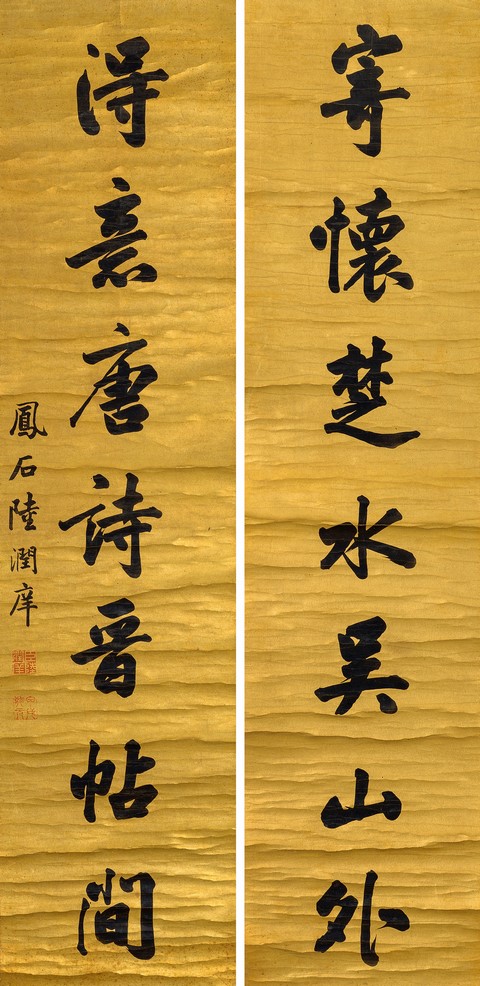 寄懷楚水吳山外
得意唐詩晉帖間
鳳石陸潤庠